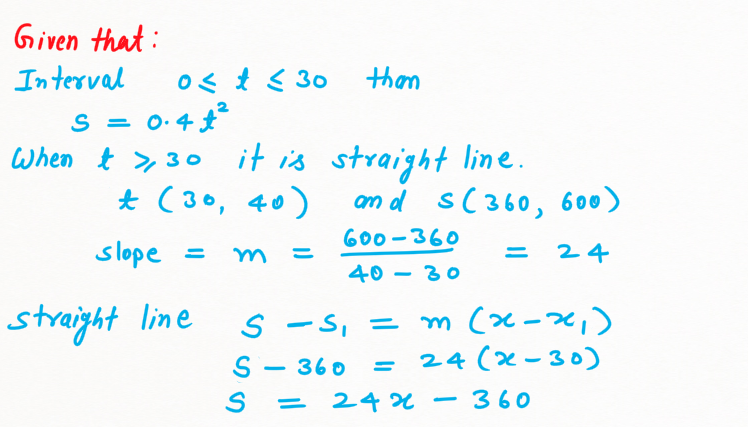 Given that:
Interval 0 ≤ t ≤ 30 than
S = 0.4t²
When t ≥ 30 it is straight line.
t (30, 40) and S(360, 600)
slope = m = (600-360)/(40-30) = 24
straight line S - S₁ = m (x-x₁)
S - 360 = 24(x-30)
S = 24x - 360